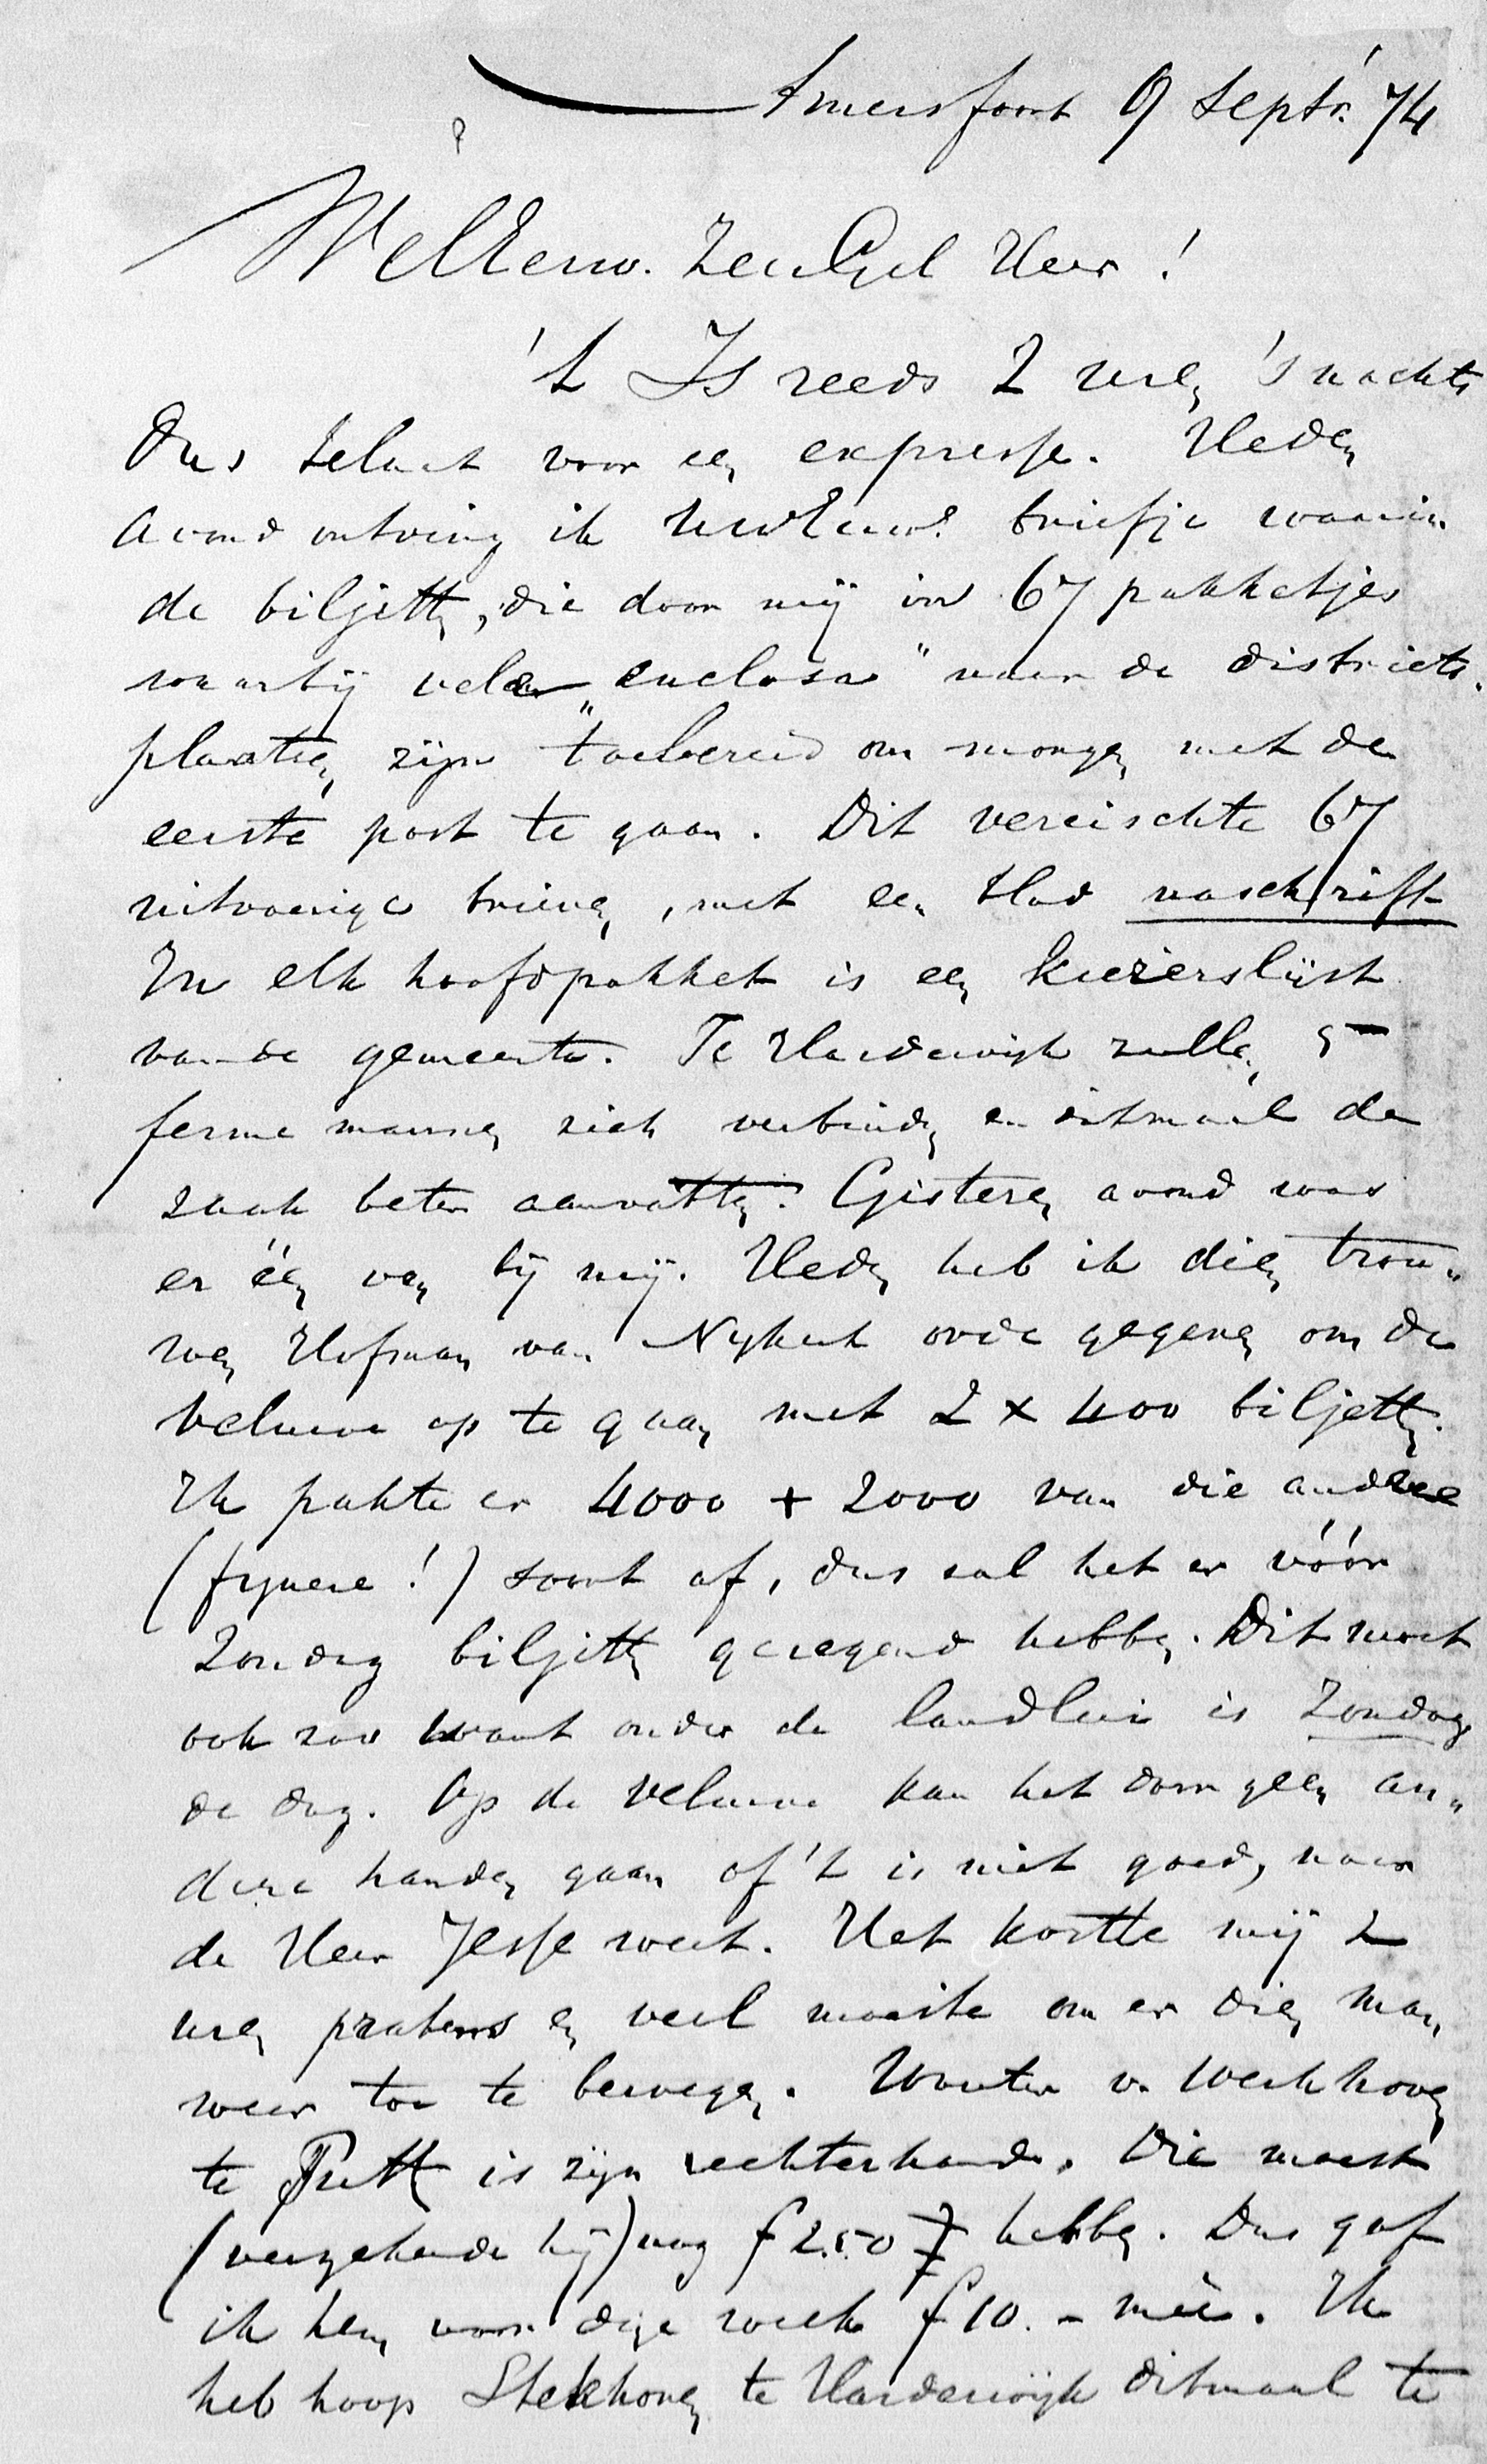 Amersfoort 9 Septr. '74
WelEerw. ZeerGel Heer!
't Is reeds 2 uren 's nachts
Dus te laat voor een expresse. Heden
avond ontving ik UwEerw. briefje waarin
de biljetten, die door mij in 67 pakketjes
waarbij vele „enclosa" naar de districts-
plaatsen zijn toebereid om morgen met de
eerste post te gaan. Dit vereischte 67
uitvoerige brieven, met een blad naschrift
In elk hoofdpakket is een kiezerslijst
van de gemeente. Te Harderwijk zullen 5
ferme mannen zich verbinden en ditmaal de
zaak beter aanvatten. Gisteren avond was
er één van bij mij. Heden heb ik dien trou-
wen Hofman van Nijkerk orde gegeven om de
Veluwe op te gaan met 2 x 400 biljetten.
Ik pakte er 4000 + 2000 van die andere
(fijnere!) soort af, dus zal het er vóór
Zondag biljetten geregend hebben. Dit moet
ook zoo want onder de landlui is Zondag
de dag. Op de Veluwe kan het door geen an-
dere handen gaan of 't is niet goed, naar
de Heer Jesse weet. Het kostte mij 2
uren pratens en veel moeite om er dien man
weer toe te bewegen. Wouter v. Werkhoven
te Putten is zijn rechterhand. Die moest
(verzekerde hij) nog f 2.50 hebben. Dus gaf
ik hem voor deze week f 10.- meê. Ik
heb hoop Stekhoven te Harderwijk ditmaal te